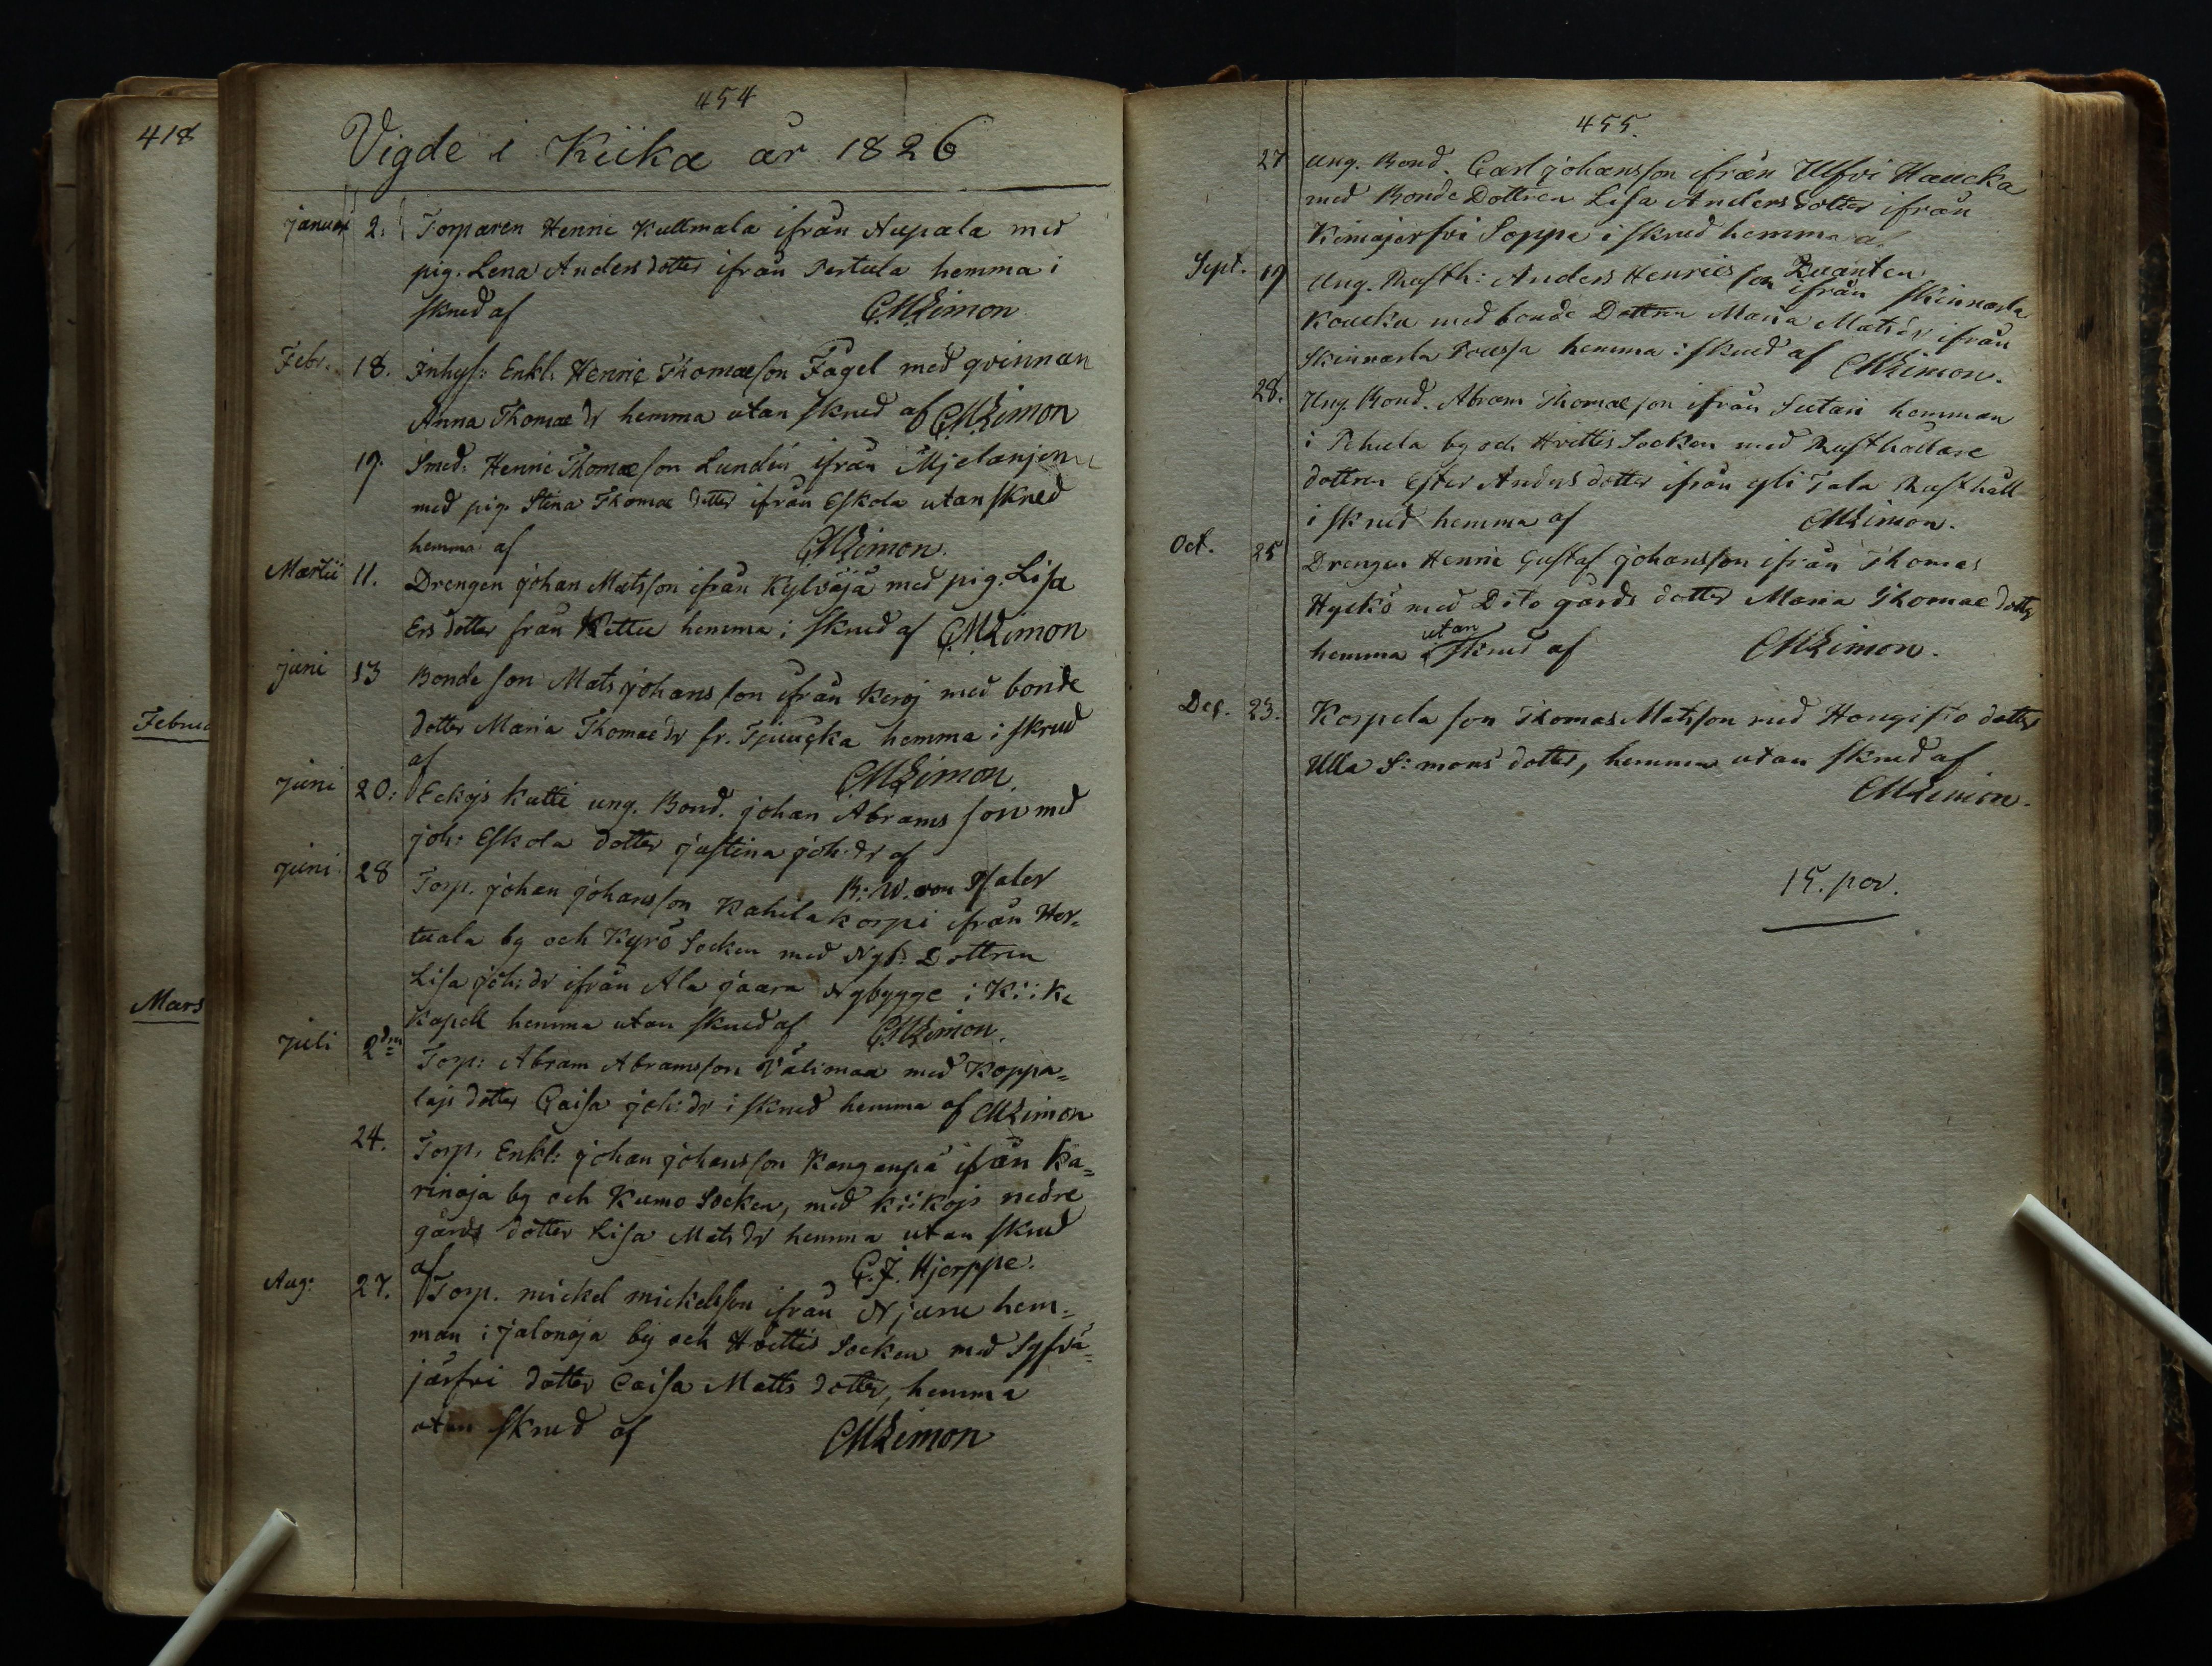 418
Februa
Mars
454
Vigde i Kiika år 1826
januari 2. Torparen Henric Kullmala ifrån Aupala med
pig. Lena Anders dotter ifrån Pertula hemma i
skrud af CMLimon
Febr. 18. Inhys: Enkl. Henric Thomaeson Fagel med qvinnan
Anna Thomae dr hemma utan skrud af CMLimon
19. Smed: Henric Thomaeson Lundén ifrån Mjelanjemi
med pig. Stina Thomae dotter ifrån Eskola utan skrud
hemma af CMLimon.
Martii 11. Drengen Johan Matsson ifrån Kylvöjä med pig. Lisa
Ers dotter från Kettu hemma i skrud af CMLimon
juni 13 Bonde son Mats Johansson ifrån Keroj med bonde
dotter Maria Thomae dr fr. hemma i skrud
af CMLimon.
juni 20: Eckojs Kutti ung. Bond. Johan Abrams son med
Joh: Eskola dotter Justina Joh:dr af
R: W. von Psaler
juni 28 Torp. Johan Johansson Kahilakorpi ifrån Her-
tuala by och Kyrö Socken med Nyb: Dottren
Lisa Joh:dr ifrån Ala jaara Nybygge i Kiika
Kapell hemma utan skrud af CMLimon.
juli 2dra Torp: Abram Abramsson Välimaa med Koppa=
laji dotter Caisa Joh:dr i skrud hemma af CMLimon
24. Torp. Enkl: Johan Johansson Kangenpä ifrån Ka=
rinoja by och Kumo Socken, med Kiikojs nedre
gårds dotter Lisa Mats dr hemma utan skrud
af C. J. Hjorppe.
Aug: 27. Torp. Mickel Mickelsson ifrån Njuru hem=
man i Jalonoja by och Hvittis Socken med Sysvä=
järfvi dotter Caisa Matts dotter, hemma
utan skrud af CMLimon
455.
27 Ung. Bond. Carl Johansson ifrån Ulfvi Haucka
med Bonde Dottren Lisa Anders dotter ifrån
Kimajersvi Soppe i skrud hemma af
Sept. 19 Ung. Rusth: Anders Henricsson Quanten ifrån Skinnarla
Koucku med bonde Dottren Maria Mats dr ifrån
Skinnarla Poussa hemma i skrud af CMLimon.
28. Ung. Bond. Abram Thomaeson ifrån Sutari hemman
i Pehula by och Hvittis Socken med Rusthållare
dottren Ester Anders dotter ifrån yli Tala Rusthåll
i skrud hemma af CMLimon.
Oct. 25 Drengen Henric Gustaf Johansson ifrån Thomas
Hyckö med Dito gårds dotter Maria Thomae dotter
hemma utan skrud af CMLimon.
Dec. 23. Korpela son Thomas Matsson med Hongisto dotter
Ulla Simons dotter, hemma utan skrud af
CMLimon.
15. par.